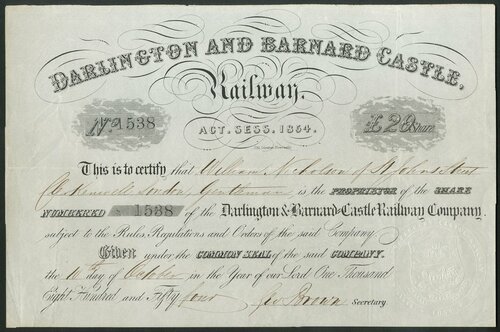 DARLINGTON AND BARNARD CASTLE.
Railway.
ACT. SESS. 1854.
No. 1538
£20 Share
This is to certify that William Nicholson of St Johns Street
Clerkenwell London, Gentleman is the PROPRIETOR of the SHARE
NUMBERED 1538 of the Darlington & Barnard-Castle Railway Company,
subject to the Rules, Regulations and Orders of the said Company.
Given under the COMMON SEAL of the said COMPANY.
the day of October in the Year of our Lord One Thousand
Eight Hundred and Fifty four
Brown Secretary.